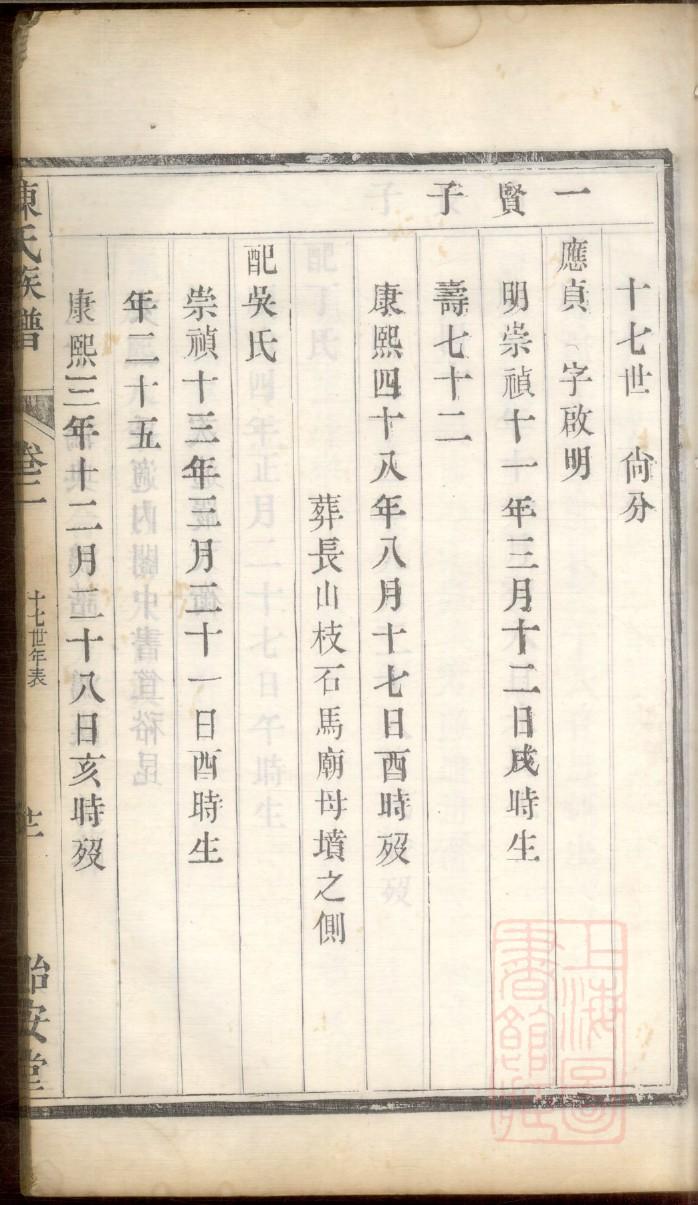 一賢子
十七世 尙分
應貞 字啟明
明崇禎十一年三月十二日戌時生
壽七十二
康熙四十八年八月十七日酉時歿
葬長山枝石馬廟母墳之側
配吳氏
崇禎十三年三月三十一日酉時生
年二十五
康熙三年十二月二十八日亥時歿
陳氏族譜
卷二
十七世年表
廿一
怡安堂
上海圖書館藏